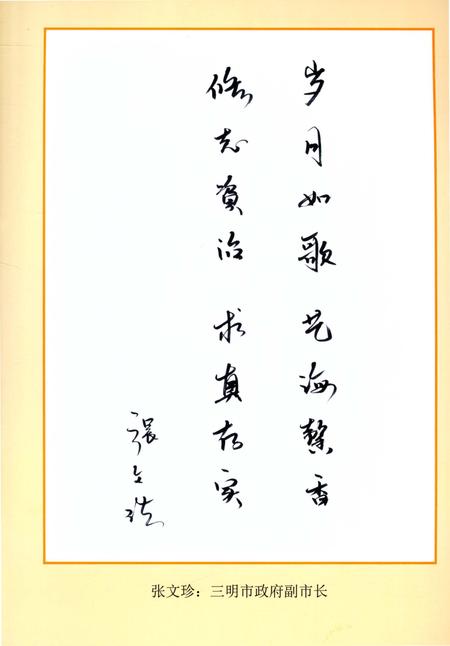 岁月如歌 艺海馨香
修志资治 求真存实
张文珍
张文珍：三明市政府副市长